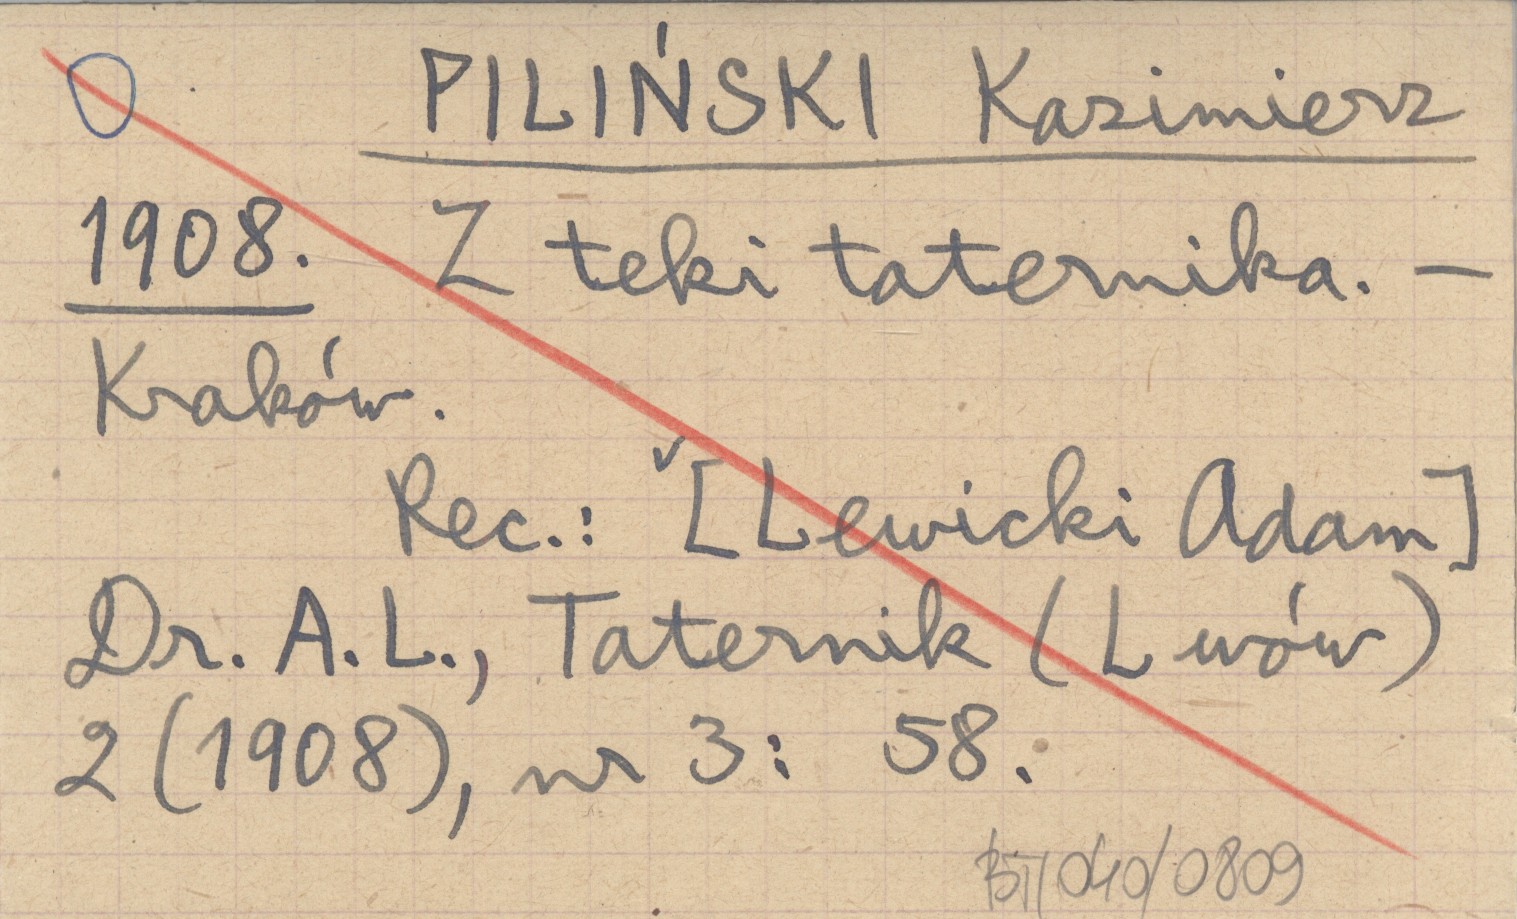 PILIŃSKI Kazimierz
1908. Z teki taternika. —
Kraków.
Rec.: [Lewicki Adam]
Dr. A.L., Taternik (Lwów)
2(1908), nr 3: 58.
BT/040/0809